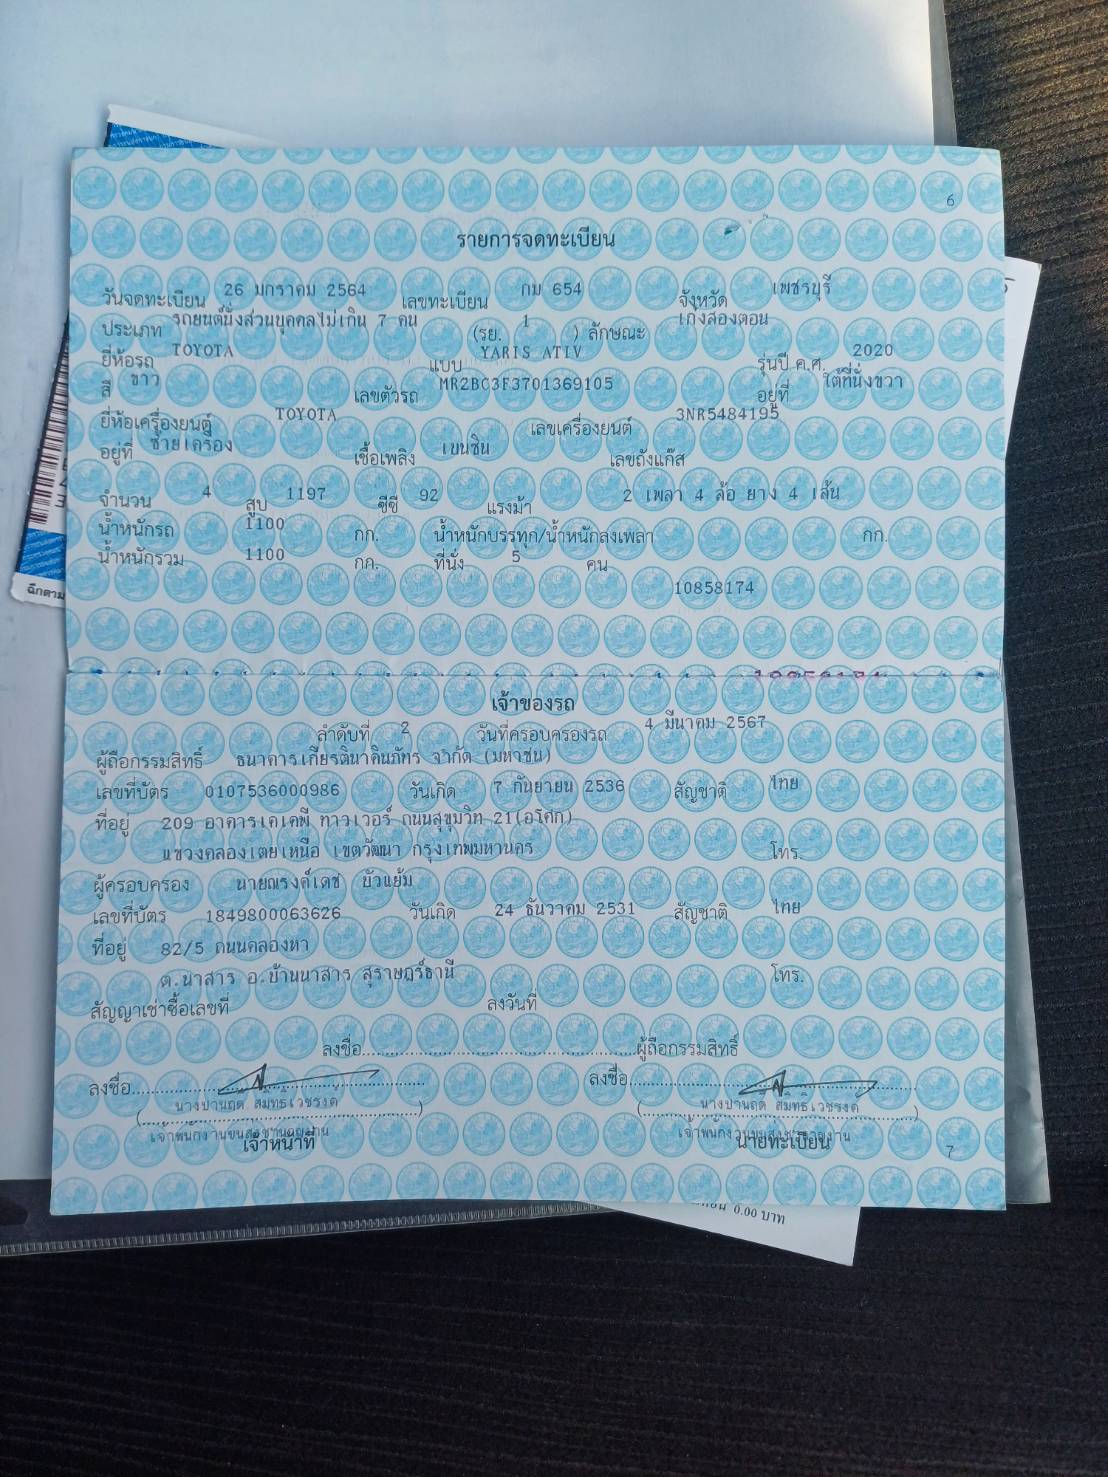 6
รายการจดทะเบียน
วันจดทะเบียน 26 มกราคม 2564 เลขทะเบียน กม 654 จังหวัด เพชรบุรี
ประเภท รถยนต์นั่งส่วนบุคคลไม่เกิน 7 คน (รย. 1 ) ลักษณะ เก๋งสองตอน
ยี่ห้อรถ TOYOTA แบบ YARIS ATIV รุ่นปี ค.ศ. 2020
สี ขาว เลขตัวรถ MR2BC3F3701369105 อยู่ที่ ใต้ที่นั่งขวา
ยี่ห้อเครื่องยนต์ TOYOTA เลขเครื่องยนต์ 3NR5484195
อยู่ที่ ซ้ายเครื่อง เชื้อเพลิง เบนซิน เลขถังแก๊ส
จำนวน 4 สูบ 1197 ซีซี 92 แรงม้า 2 เพลา 4 ล้อ ยาง 4 เส้น
น้ำหนักรถ 1100 กก. น้ำหนักบรรทุก/น้ำหนักลงเพลา กก.
น้ำหนักรวม 1100 กก. ที่นั่ง 5 คน
10858174
เจ้าของรถ
ลำดับที่ 2 วันที่ครอบครองรถ 4 มีนาคม 2567
ผู้ถือกรรมสิทธิ์ ธนาคารเกียรตินาคินภัทร จำกัด (มหาชน)
เลขที่บัตร 0107536000986 วันเกิด 7 กันยายน 2536 สัญชาติ ไทย
ที่อยู่ 209 อาคารเคเคพี ทาวเวอร์ ถนนสุขุมวิท 21(อโศก)
แขวงคลองเตยเหนือ เขตวัฒนา กรุงเทพมหานคร โทร.
ผู้ครอบครอง นายณรงค์เดช บัวแย้ม
เลขที่บัตร 1849800063626 วันเกิด 24 ธันวาคม 2531 สัญชาติ ไทย
ที่อยู่ 82/5 ถนนคลองหา
ต.นาสาร อ.บ้านนาสาร สุราษฎร์ธานี โทร.
สัญญาเช่าซื้อเลขที่ ลงวันที่
ลงชื่อ ผู้ถือกรรมสิทธิ์
ลงชื่อ ลงชื่อ
เจ้าหน้าที่ นายทะเบียน
7
0.00 บาท
ฉีกตาม